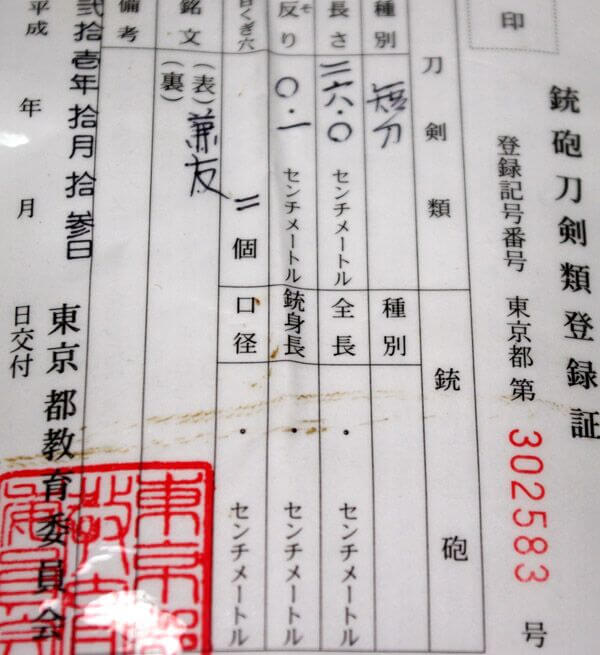 銃砲刀剣類登録証
印
登録記号番号 東京都第 302583 号
刀剣類
銃砲
種別 短刀
種別
長さ 二六・〇 センチメートル
全長 ・ センチメートル
反り ソ 〇・一 センチメートル
銃身長 ・ センチメートル
目くぎ穴 二 個
口径 ・ センチメートル
銘文 (表) 兼友
(裏)
備考
弐拾壱年拾月拾参日
平成 年 月 日交付
東京都教育委員会